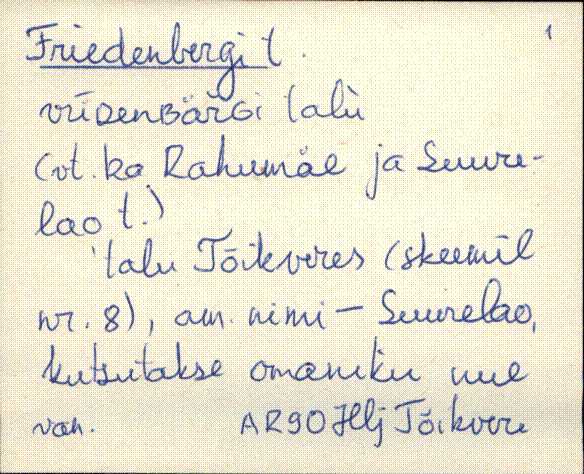 Friedenbergi t. 1
vrīDenBäRGi talù
(vt. ka Rahumäe ja Suure-
lao t.)
talu Tõikveres (skeemil
nr. 8), am. nimi – Suurelao,
kutsutakse omaniku nue
van. AR90 Hlj Tõikvere